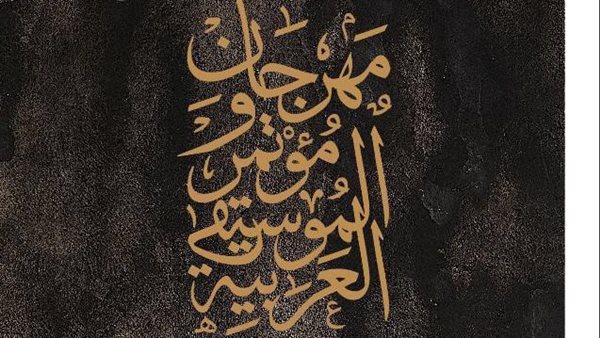 مَهرجَان
وَ
مُؤتمَر
المُوسيقى
العَرَبيَة